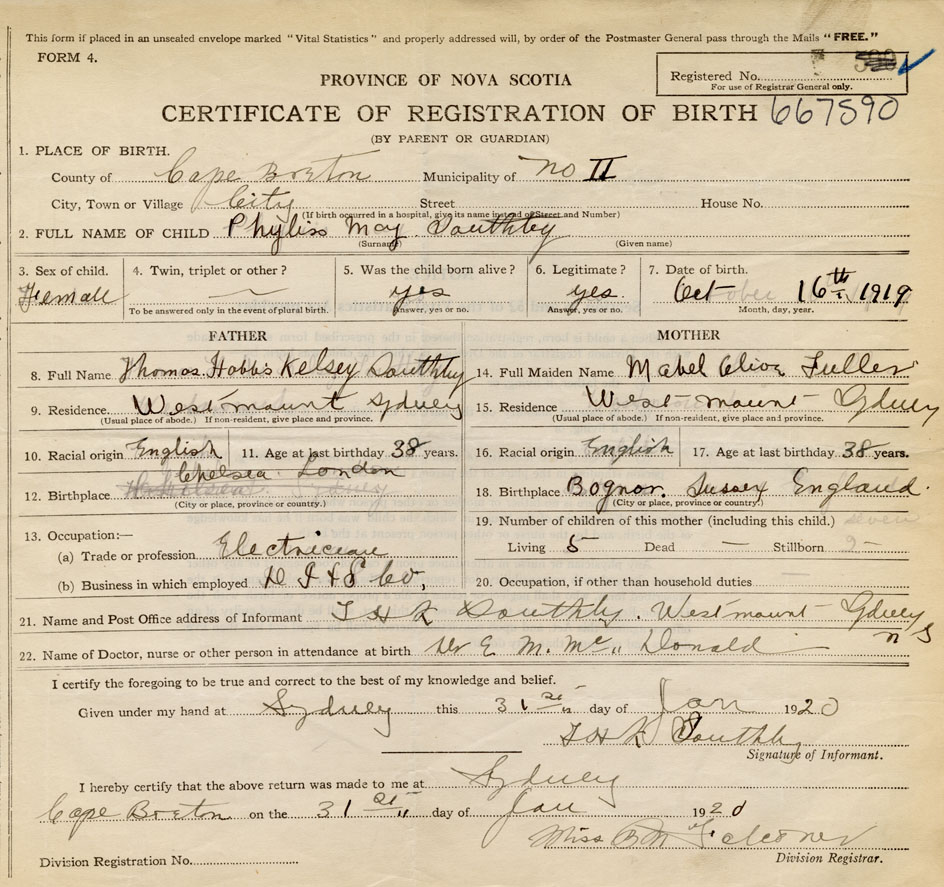 This form if placed in an unsealed envelope marked "Vital Statistics" and properly addressed will, by order of the Postmaster General pass through the Mails "FREE."
FORM 4.
PROVINCE OF NOVA SCOTIA
Registered No.
For use of Registrar General only.
CERTIFICATE OF REGISTRATION OF BIRTH 667590
(BY PARENT OR GUARDIAN)
1. PLACE OF BIRTH.
County of Cape Breton Municipality of No II
City, Town or Village City Street House No.
(If birth occurred in a hospital, give its name instead of Street and Number)
2. FULL NAME OF CHILD Phyliss May Southby
(Surname) (Given name)
3. Sex of child. 4. Twin, triplet or other? 5. Was the child born alive? 6. Legitimate? 7. Date of birth.
Female — yes yes. Oct 16th 1919
To be answered only in the event of plural birth. Answer, yes or no. Answer, yes or no. Month, day, year.
FATHER MOTHER
8. Full Name Thomas Hobbs Kelsey Southby 14. Full Maiden Name Mabel Fuller
9. Residence. Westmount Sydney 15. Residence West-mount Sydney
(Usual place of abode.) If non-resident, give place and province. (Usual place of abode.) If non-resident, give place and province.
10. Racial origin English 11. Age at last birthday 38 years. 16. Racial origin English 17. Age at last birthday 38 years.
Chelsea London
12. Birthplace 18. Birthplace Bognor. Sussex England.
(City or place, province or country.) (City or place, province or country.)
13. Occupation:— 19. Number of children of this mother (including this child.) seven
(a) Trade or profession Electrician Living 5 Dead — Stillborn 2-
(b) Business in which employed D I & S Co, 20. Occupation, if other than household duties
21. Name and Post Office address of Informant T H K Southby. Westmount Sydney
N S
22. Name of Doctor, nurse or other person in attendance at birth Dr E. M. Mc Donald
I certify the foregoing to be true and correct to the best of my knowledge and belief.
Given under my hand at Sydney this 31st day of Jan 1920
T H K Southby
Signature of Informant.
I hereby certify that the above return was made to me at Sydney
Cape Breton on the 31st day of Jan 1920
Miss B M Falconer
Division Registration No. Division Registrar.